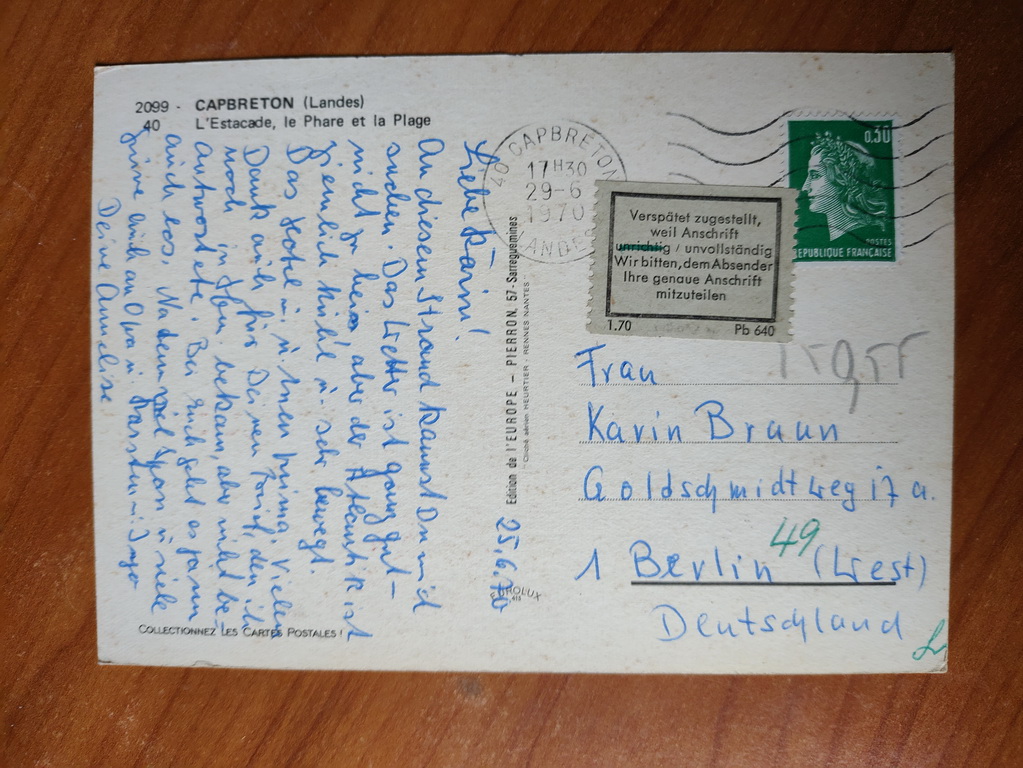 2099 - CAPBRETON (Landes)
40 L'Estacade, le Phare et la Plage
25.6.70
Liebe Karin!
An diesem Strand kannst Du mich
suchen. Das Wetter ist ganz gut -
nicht zu heiss, aber der Atlantik ist
ziemlich kühl u. sehr bewegt.
Das Hotel u. Essen prima. Vielen
Dank auch für Deinen Brief, den ich
noch in bekam, aber nicht be-
antwortete. Bei Euch geht es ja nun
auch los. Na denn viel Spass u. viele
Grüsse auch an Opa u.
Deine Annelise
COLLECTIONNEZ LES CARTES POSTALES !
Edition de l'EUROPE - PIERRON, 57-Sarreguemines
Cliché aérien HEURTIER - RENNES NANTES
EUROLUX
40 CAPBRETON
17H30
29-6
1970
LANDES
0,30
POSTES
REPUBLIQUE FRANÇAISE
Verspätet zugestellt,
weil Anschrift
unrichtig / unvollständig
Wir bitten, dem Absender
Ihre genaue Anschrift
mitzuteilen
1.70 Pb 640
Frau
Karin Braun
Goldschmidtweg 17 a.
49
1 Berlin (West)
Deutschland